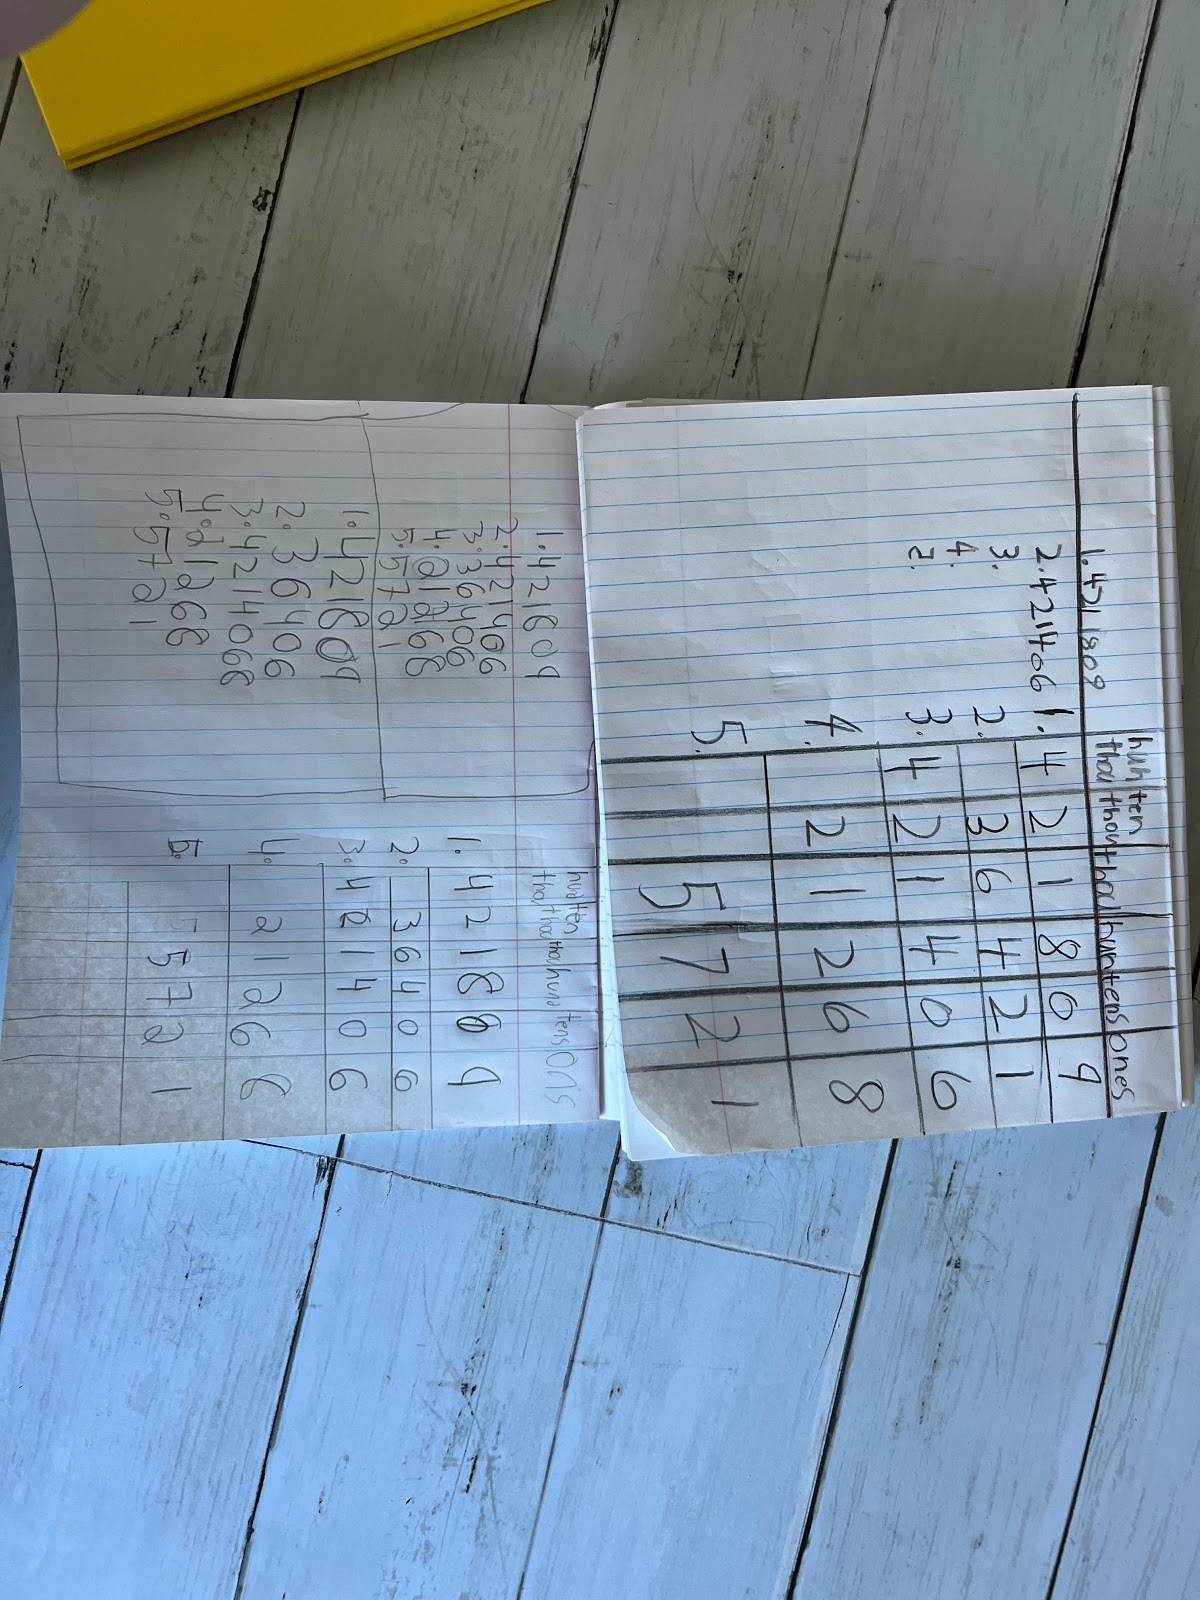 2.421406
3.
4.
2.
hun ten
thou thou thou hun tens ones
1. 4 2 1 8 0 9
2. 3 6 4 2 1
3. 4 2 1 4 0 6
4. 2 1 2 6 8
5. 5 7 2 1
1.421809
2.421406
3.36406
4.21268
5.5721
1.421809
2.36406
3.4214068
4.21268
5.5721
hun ten
thou thou thou hund tens On's
1. 4 2 1 8 0 9
2. 3 6 4 0 6
3. 4 2 1 4 0 6
4. 2 1 2 6 8
5. 5 7 2 1